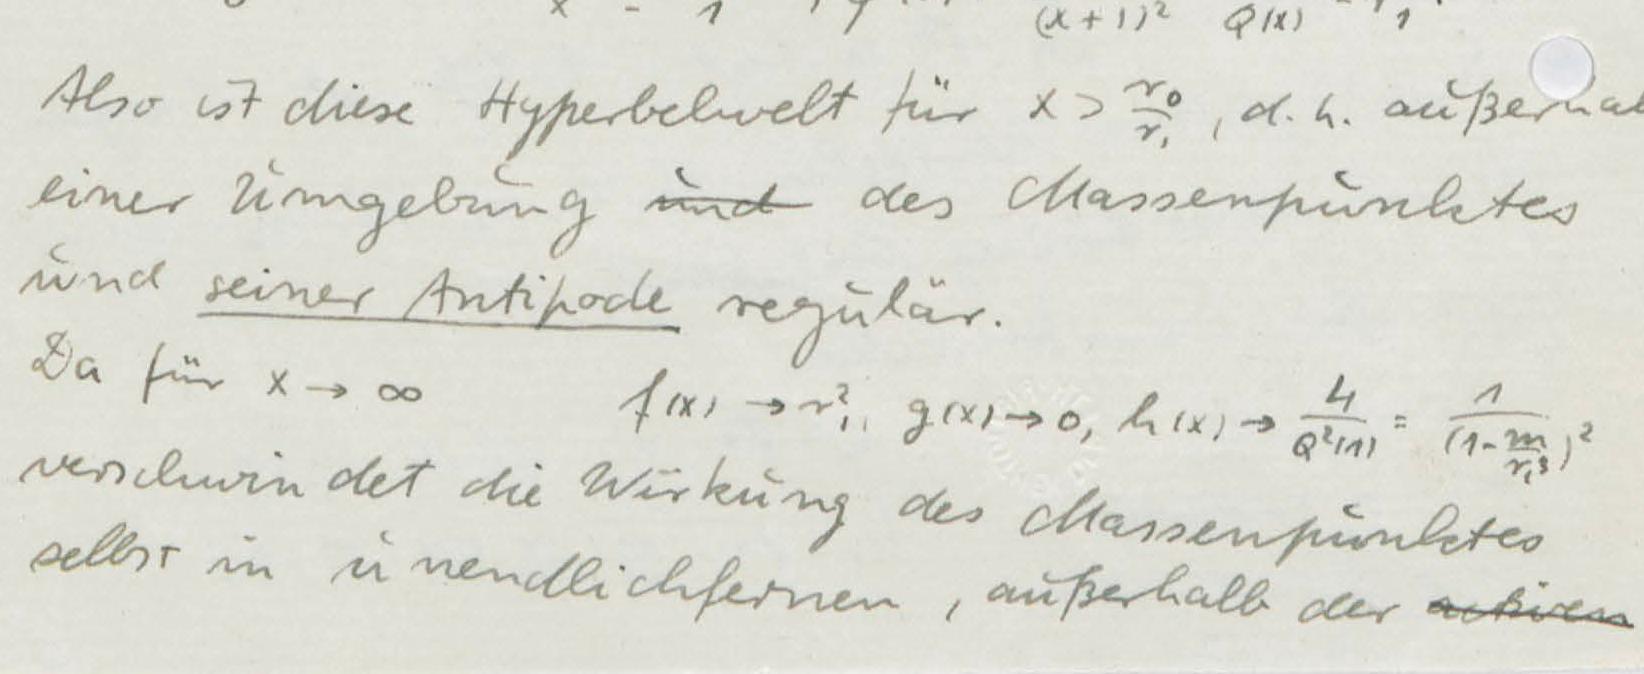 (x+1)² Q(x)
Also ist diese Hyperbelwelt für x > r₀/r₁, d.h. außerhal
einer Umgebung ~~und~~ des Massenpunktes
und seiner Antipode regulär.
Da für x → ∞ f(x) → r₁², g(x) → 0, h(x) → 4/Q²(1) = 1/(1-m/r₁³)²
verschwindet die Wirkung des Massenpunktes
selbst in unendlichfernen, außerhalb der